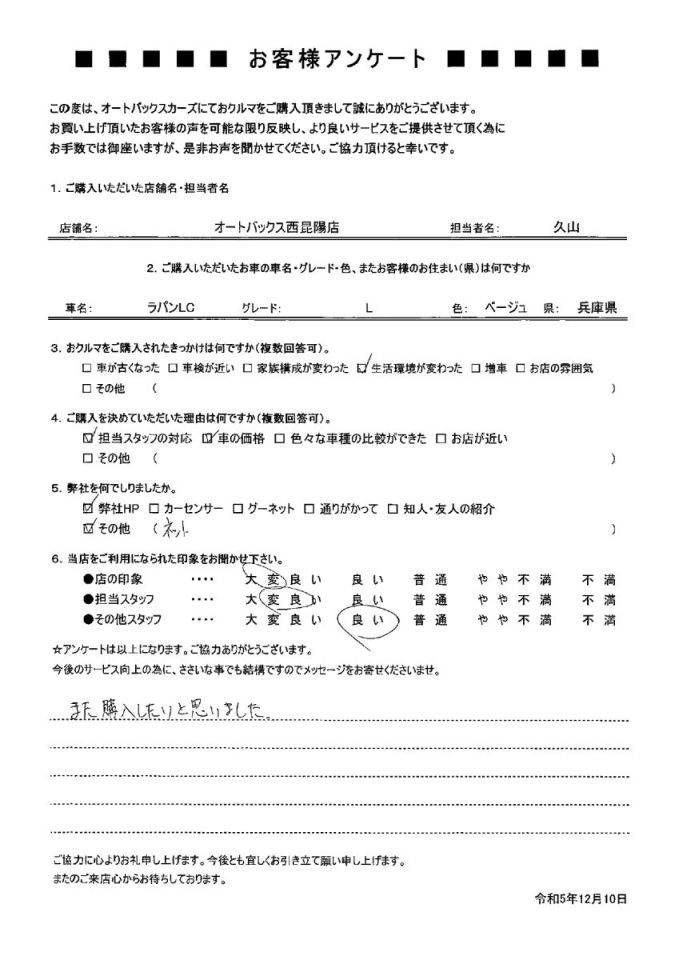 ■ ■ ■ ■ ■ お客様アンケート ■ ■ ■ ■ ■
この度は、オートバックスカーズにておクルマをご購入頂きまして誠にありがとうございます。
お買い上げ頂いたお客様の声を可能な限り反映し、より良いサービスをご提供させて頂く為に
お手数では御座いますが、是非お声を聞かせてください。ご協力頂けると幸いです。
1. ご購入いただいた店舗名・担当者名
店舗名: オートバックス西昆陽店 担当者名: 久山
2. ご購入いただいたお車の車名・グレード・色、またお客様のお住まい(県)は何ですか
車名: ラパンLC グレード: L 色: ベージュ 県: 兵庫県
3. おクルマをご購入されたきっかけは何ですか(複数回答可)。
□ 車が古くなった □ 車検が近い □ 家族構成が変わった ☑ 生活環境が変わった □ 増車 □ お店の雰囲気
□ その他 ( )
4. ご購入を決めていただいた理由は何ですか(複数回答可)。
☑ 担当スタッフの対応 ☑ 車の価格 □ 色々な車種の比較ができた □ お店が近い
□ その他 ( )
5. 弊社を何でしりましたか。
☑ 弊社HP □ カーセンサー □ グーネット □ 通りがかって □ 知人・友人の紹介
☑ その他 ( ネット )
6. 当店をご利用になられた印象をお聞かせ下さい。
●店の印象 ‥‥ 大変良い 良い 普通 やや不満 不満
●担当スタッフ ‥‥ 大変良い 良い 普通 やや不満 不満
●その他スタッフ ‥‥ 大変良い 良い 普通 やや不満 不満
☆アンケートは以上になります。ご協力ありがとうございます。
今後のサービス向上の為に、ささいな事でも結構ですのでメッセージをお寄せくださいませ。
また購入したいと思いました。
ご協力に心よりお礼申し上げます。今後とも宜しくお引き立て願い申し上げます。
またのご来店心からお待ちしております。
令和5年12月10日